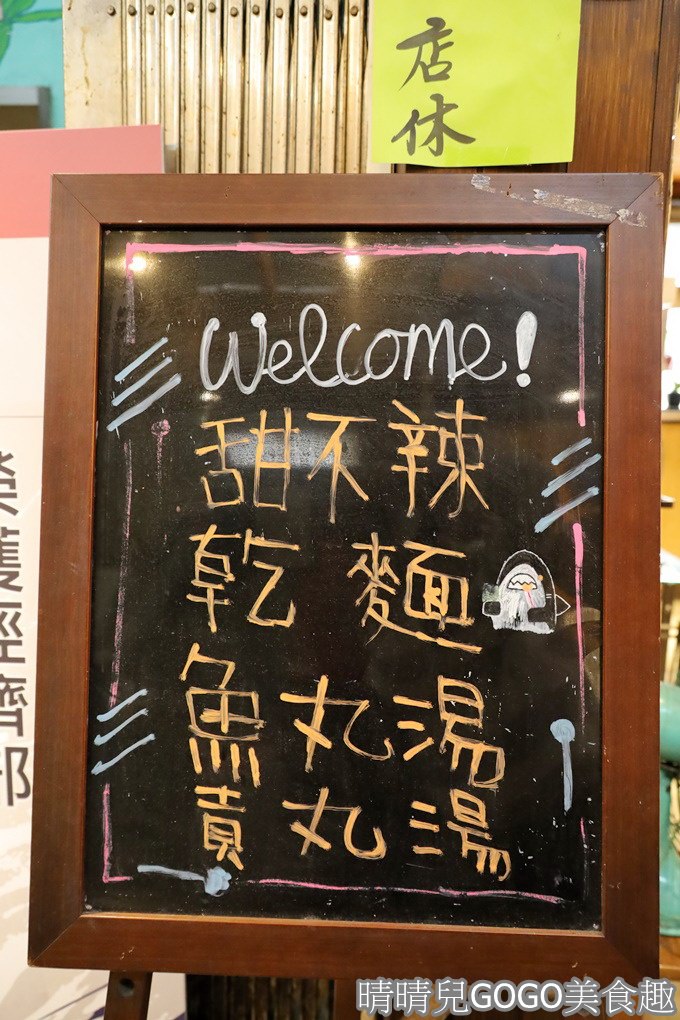 店休
Welcome!
甜不辣
乾麵
魚丸湯
貢丸湯
榮獲經濟部
晴晴兒GOGO美食趣